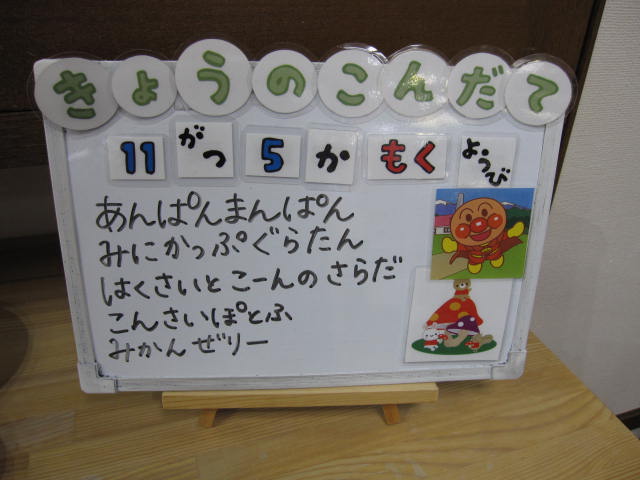 きょうのこんだて
11がつ5かもくようび
あんぱんまんぱん
みにかっぷぐらたん
はくさいとこーんのさらだ
こんさいぽとふ
みかんぜりー